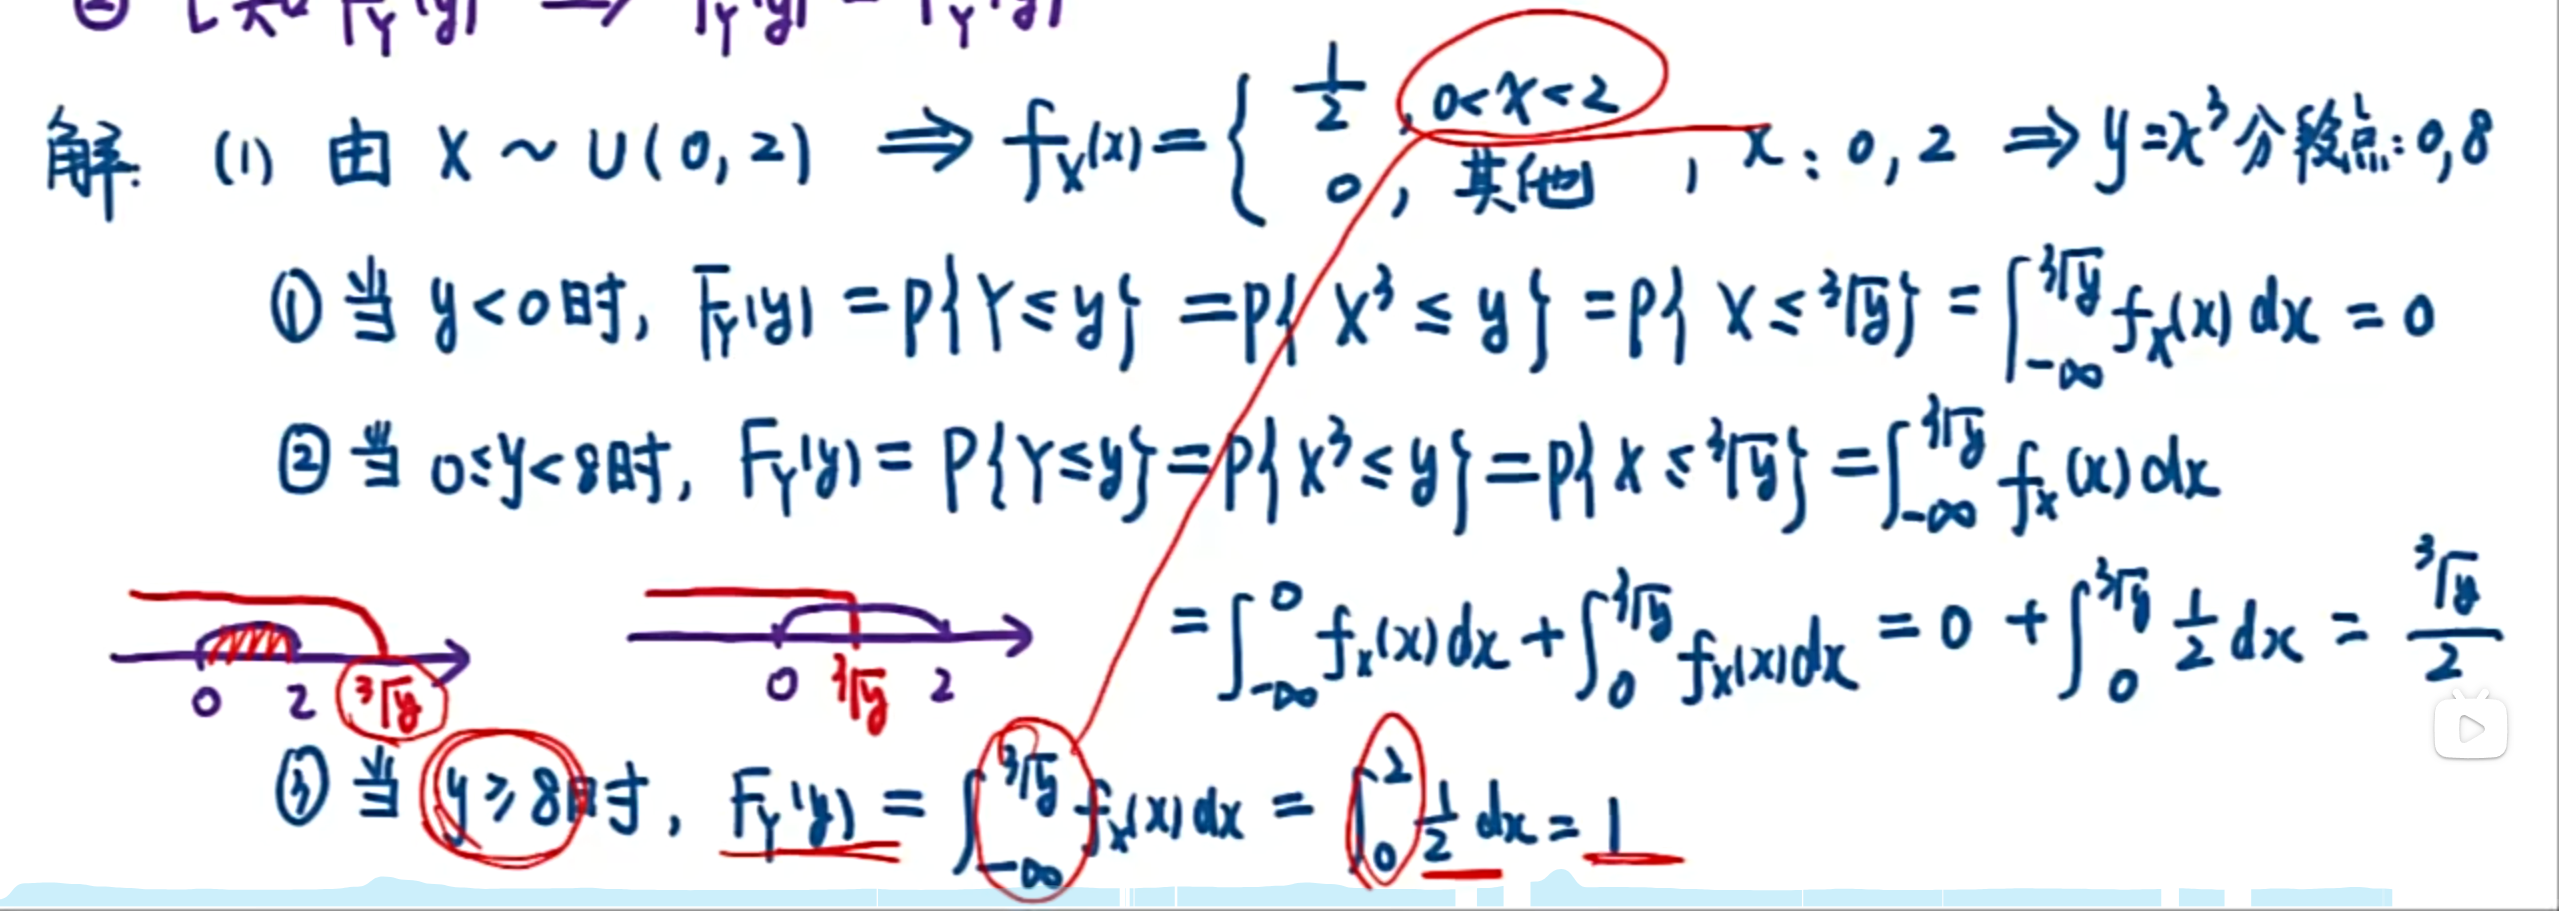 ② F_Y(y) ⟹ f_Y(y) = F_Y'(y)
解: (1) 由 X ~ U(0, 2) ⟹ f_X(x) = { 1/2, 0<x<2 ; 0, 其他 , x: 0, 2 ⟹ y=x³ 分段点: 0, 8
① 当 y<0 时, F_Y(y) = P{Y≤y} = P{X³≤y} = P{X≤³√y} = ∫_{-∞}^{³√y} f_X(x) dx = 0
② 当 0≤y<8 时, F_Y(y) = P{Y≤y} = P{X³≤y} = P{X≤³√y} = ∫_{-∞}^{³√y} f_X(x) dx
= ∫_{-∞}^{0} f_X(x) dx + ∫_{0}^{³√y} f_X(x) dx = 0 + ∫_{0}^{³√y} 1/2 dx = ³√y/2
0 2 ³√y
0 ³√y 2
③ 当 y≥8 时, F_Y(y) = ∫_{-∞}^{³√y} f_X(x) dx = ∫_{0}^{2} 1/2 dx = 1